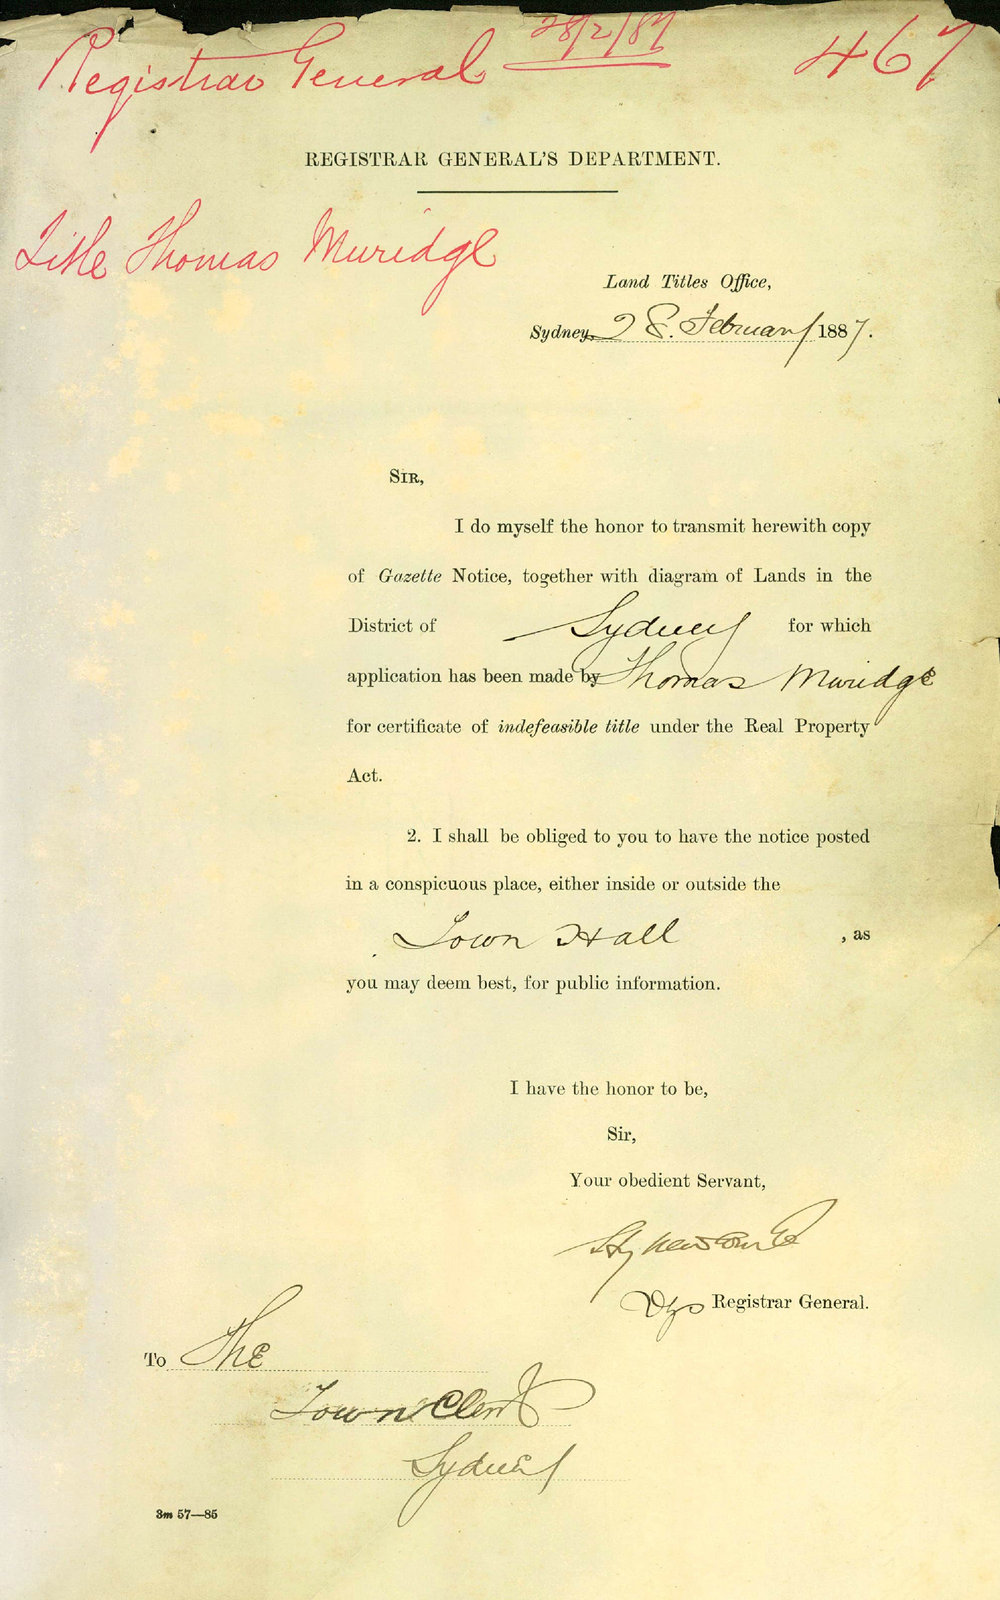 Registrar General 28/2/87 467
REGISTRAR GENERAL'S DEPARTMENT.
Title Thomas Muridge
Land Titles Office,
Sydney, 28. February 1887.
SIR,
I do myself the honor to transmit herewith copy
of Gazette Notice, together with diagram of Lands in the
District of Sydney for which
application has been made by Thomas Muridge
for certificate of indefeasible title under the Real Property
Act.
2. I shall be obliged to you to have the notice posted
in a conspicuous place, either inside or outside the
Town Hall , as
you may deem best, for public information.
I have the honor to be,
Sir,
Your obedient Servant,
Registrar General.
To The
Town Clerk
Sydney
3m 57—85